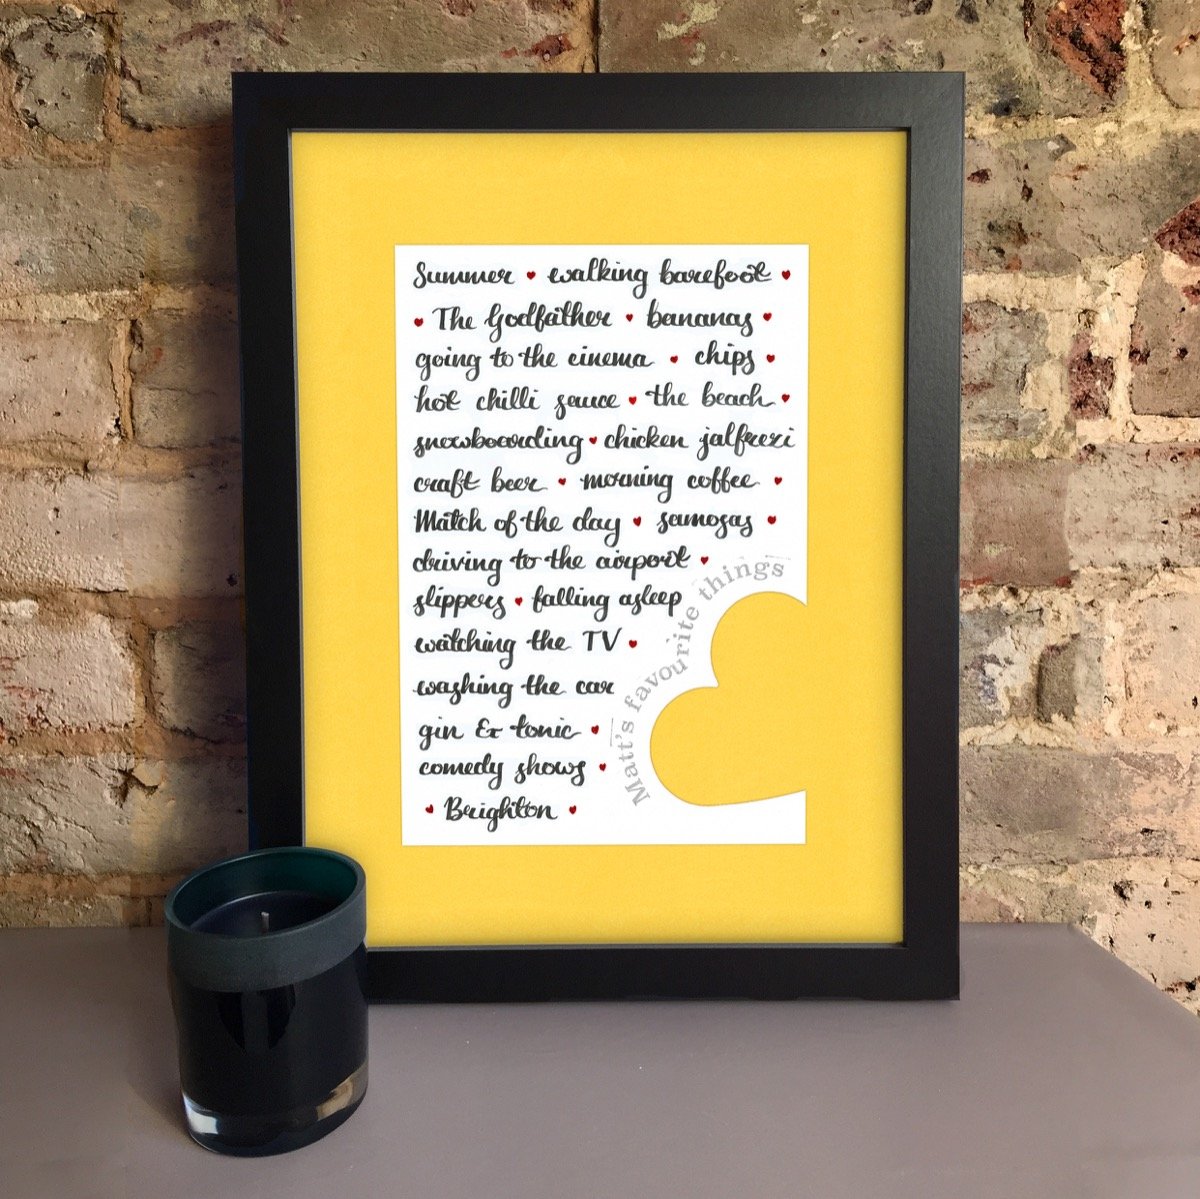 Summer ♥ walking barefoot ♥
♥ The Godfather ♥ bananas ♥
going to the cinema ♥ chips ♥
hot chilli sauce ♥ the beach ♥
snowboarding ♥ chicken jalfrezi
craft beer ♥ morning coffee ♥
Match of the day ♥ samosas ♥
driving to the airport ♥
slippers ♥ falling asleep
watching the TV ♥
washing the car
gin & tonic ♥
comedy shows ♥
♥ Brighton ♥
Matt's favourite things